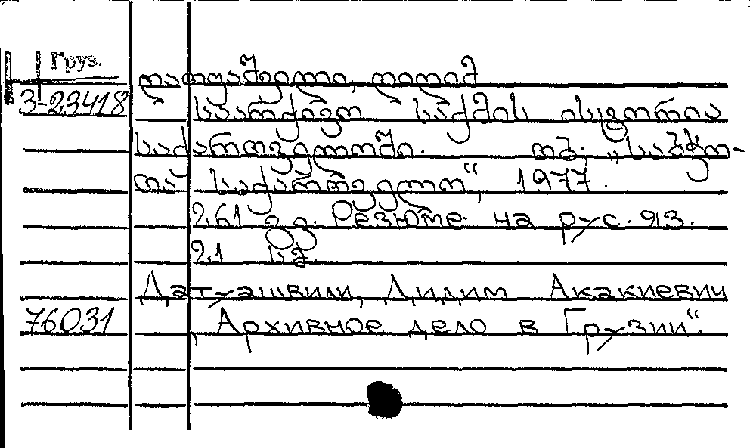 Груз.
დათუაშვილი, დიდიმ
3-23418 საარქივო საქმის ისტორია
საქართველოში. თბ. „საბჭო-
თა საქართველო“, 1977.
261 გვ. Резюме на рус. яз.
21 სმ
Датуашвили, Дидим Акакиевич
76031 „Архивное дело в Грузии“.